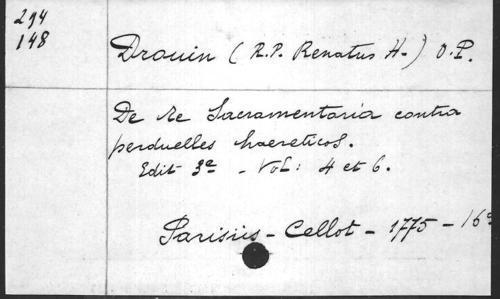 294
148
Drouin (R.P. Renatus H.) O.P.
De re Sacramentaria contra
perduelles haereticos.
Edit 3ª - Vol: 4 et 6.
Parisiis - Cellot - 1775 - 16º